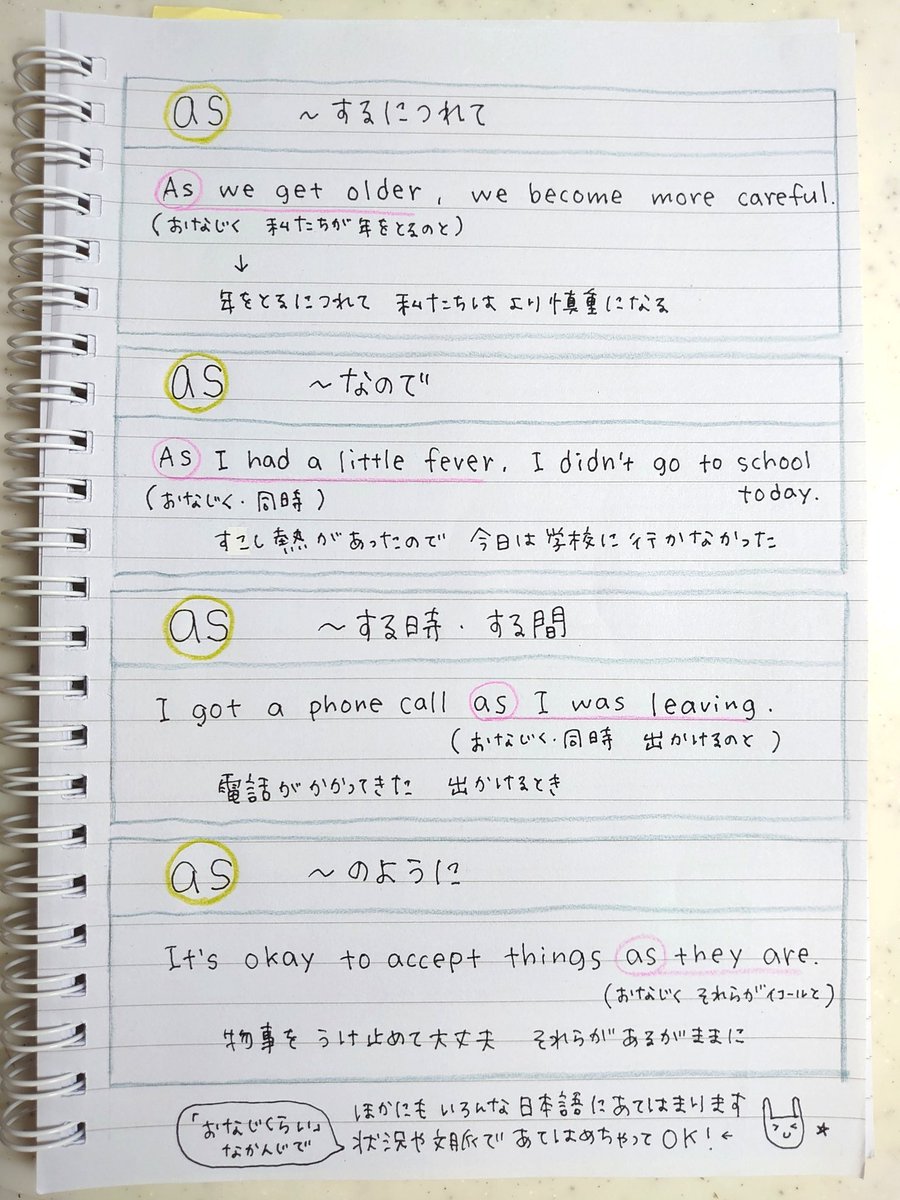 as ～するにつれて
As we get older, we become more careful.
(おなじく 私たちが年をとるのと)
↓
年をとるにつれて 私たちは より慎重になる
as ～なので
As I had a little fever, I didn't go to school
today.
(おなじく・同時)
すこし熱があったので 今日は学校に行かなかった
as ～する時・する間
I got a phone call as I was leaving.
(おなじく・同時 出かけるのと)
電話がかかってきた 出かけるとき
as ～のように
It's okay to accept things as they are.
(おなじく それらがイコールと)
物事を うけ止めて大丈夫 それらがあるがままに
「おなじくらい」
なかんじで
ほかにも いろんな 日本語にあてはまります
状況や文脈で あてはめちゃって OK!←